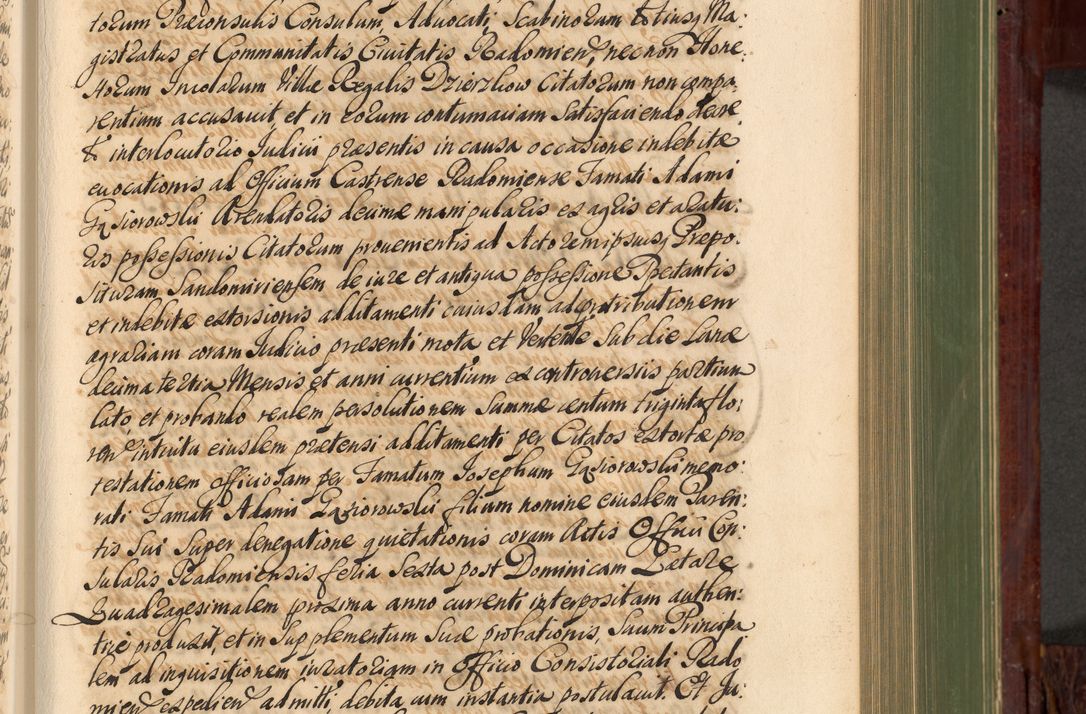 torum Præconsulis Consulum, Advocati, Scabinorum totiusq Ma:
gistratus et Communitatis Civitatis Radomien, necnon Hone:
storum Incolarum Villæ Regalis Dzierzkow Citatorum non compa:
rentium accusavit, et in eorum contumaciam Satisfaciendo decre:
to interlocutorio Judicii præsentis in causa occasione indebitæ
evocationis ad Officium Castrense Radomiense Famati Adami
Gąsiorowski Arendatoris decimæ manipularis ex agris et aratu:
ris possessionis Citatorum provenientis ad Actorem ipsumq Præpo:
situram Sandomiriensem de iure et antiqua possessione Spectantis
et indebitæ extorsionis additamenti cuiusdam ad contributionem
agrariam coram Judicio præsenti mota et Vertente Sub die
decima tertia Mensis et anni currentium ex controversiis partium
lato, et probando realem persolutionem Summæ centum triginta flo:
ren intuitu eiusdem prætensi additamenti per Citatos extortæ pro
testationem officiosam per Famatum Josephum Gąsiorowski memo:
rati Famati Adami Gąsiorowski filium nomine eiusdem Paren:
tis Sui Super denegatione quietationis coram Actis Officii Con:
sularis Radomiensis feria Sexta post Dominicam Lætare
Quadragesimalem proxima anno currenti interpositam authen:
tice produxit, et in Supplementum Suæ probationis, Suum Principa
lem ad inquisitionem iuratoriam in Officio Consistoriali Rado
mien expedien admitti, debita cum instantia postulavit. Et Ju: